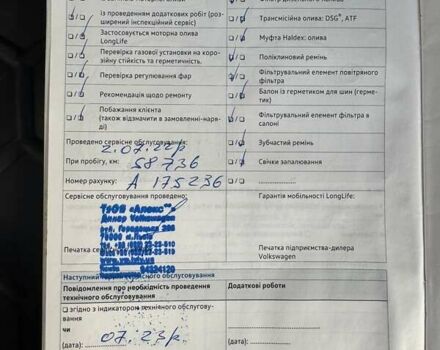 із проведенням додаткових робіт (роз-
ширений інспекційний сервіс)
Застосовується моторна олива
LongLife
Перевірка газової установки на коро-
зійну стійкість та герметичність.
Перевірка регулювання фар
Рекомендація щодо ремонту
Побажання клієнта
(також відзначити в замовленні-наря-
ді)
Трансмісійна олива: DSG®, ATF
Муфта Haldex: олива
Поліклиновий ремінь
Фільтрувальний елемент повітряного
фільтра
Балон із герметиком для шин (герме-
тик)
Фільтрувальний елемент фільтра в
салоні
Зубчастий ремінь
Свічки запалювання
Проведено сервісне обслуговування:
2.07.22р
При пробігу, км: 58736
Номер рахунку: А 175236
Сервісне обслуговування проведено:
ТзОВ «Алекс»
Дилер Volkswagen
Печатка
Гарантія мобільності LongLife:
Печатка підприємства-дилера
Volkswagen
Наступний обслуговування
Повідомлення про необхідність проведення
технічного обслуговування
Додаткові роботи
згідно з індикатором технічного обслугову-
вання
чи
(дата): 07.23р.
(дата):